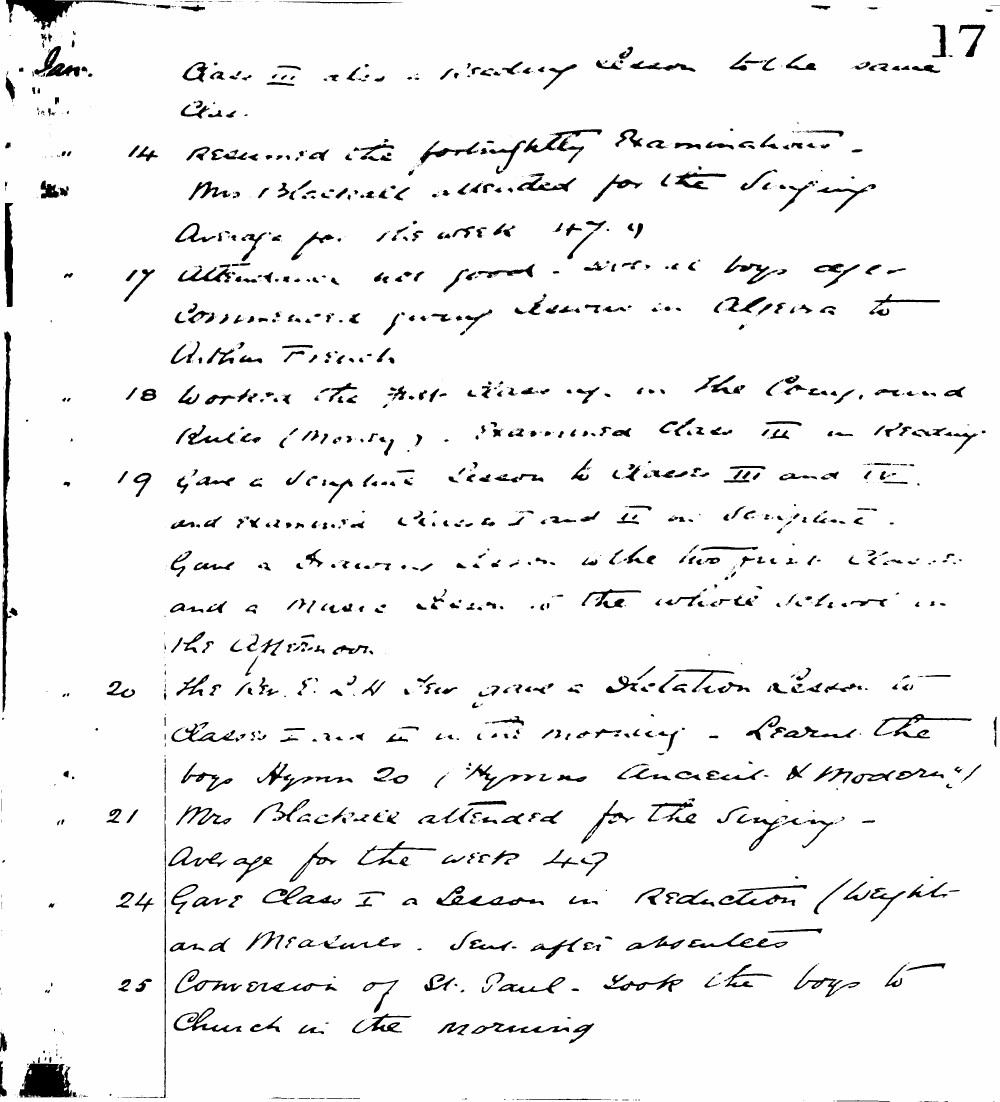 17
Jan. Class III also a Reading Lesson to the same
Class.
" 14 Resumed the fortnightly Examinations -
Mrs Blackall attended for the Singing
Average for the week 47.9
" 17 Attendance not good - several boys
Commenced giving Lessons in Algebra to
Arthur French
" 18 Worked the first Class up in the Compound
Rules (Money). Examined Class III in Reading
" 19 Gave a Scripture Lesson to Classes III and IV.
and examined Classes I and II in Scripture.
Gave a Drawing Lesson to the two first Classes
and a Music Lesson to the whole School in
the Afternoon
" 20 The Rev. E. L. H Tew gave a Dictation Lesson to
Classes I and II in the morning - Learnt the
" boys Hymn 20 ("Hymns Ancient & Modern")
" 21 Mrs Blackall attended for the Singing -
Average for the week 49
" 24 Gave Class I a Lesson in Reduction (Weights
and Measures. Sent after absentees
" 25 Conversion of St. Paul - Took the boys to
Church in the morning